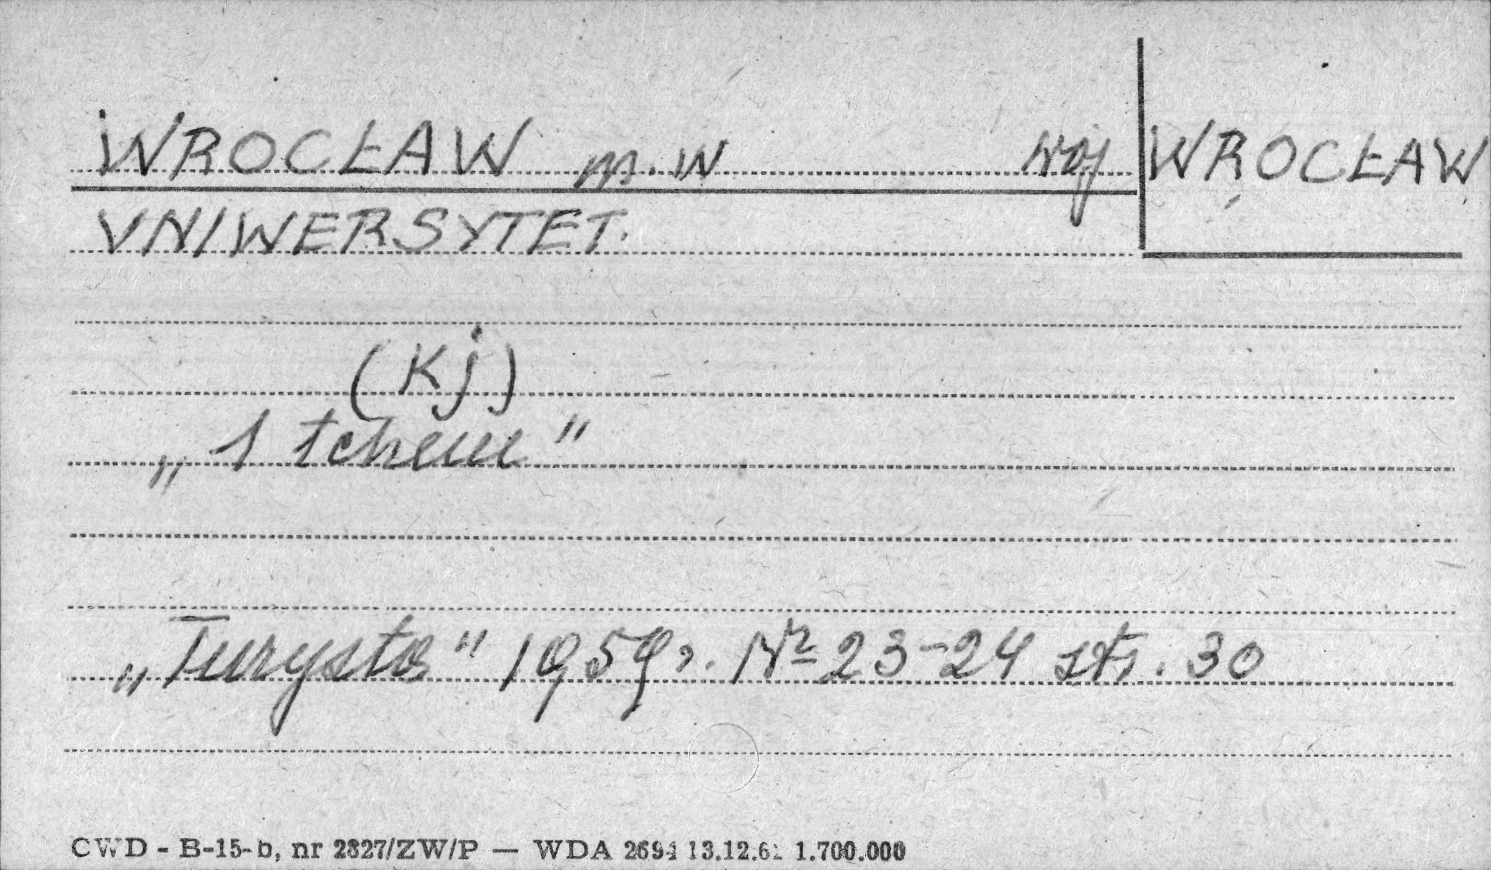 WROCŁAW m. w woj WROCŁAW
UNIWERSYTET.
(Kj)
„Turysta" 1959 r. № 23-24 str. 30
CWD - B-15-b, nr 2827/ZW/P — WDA 1.700.000